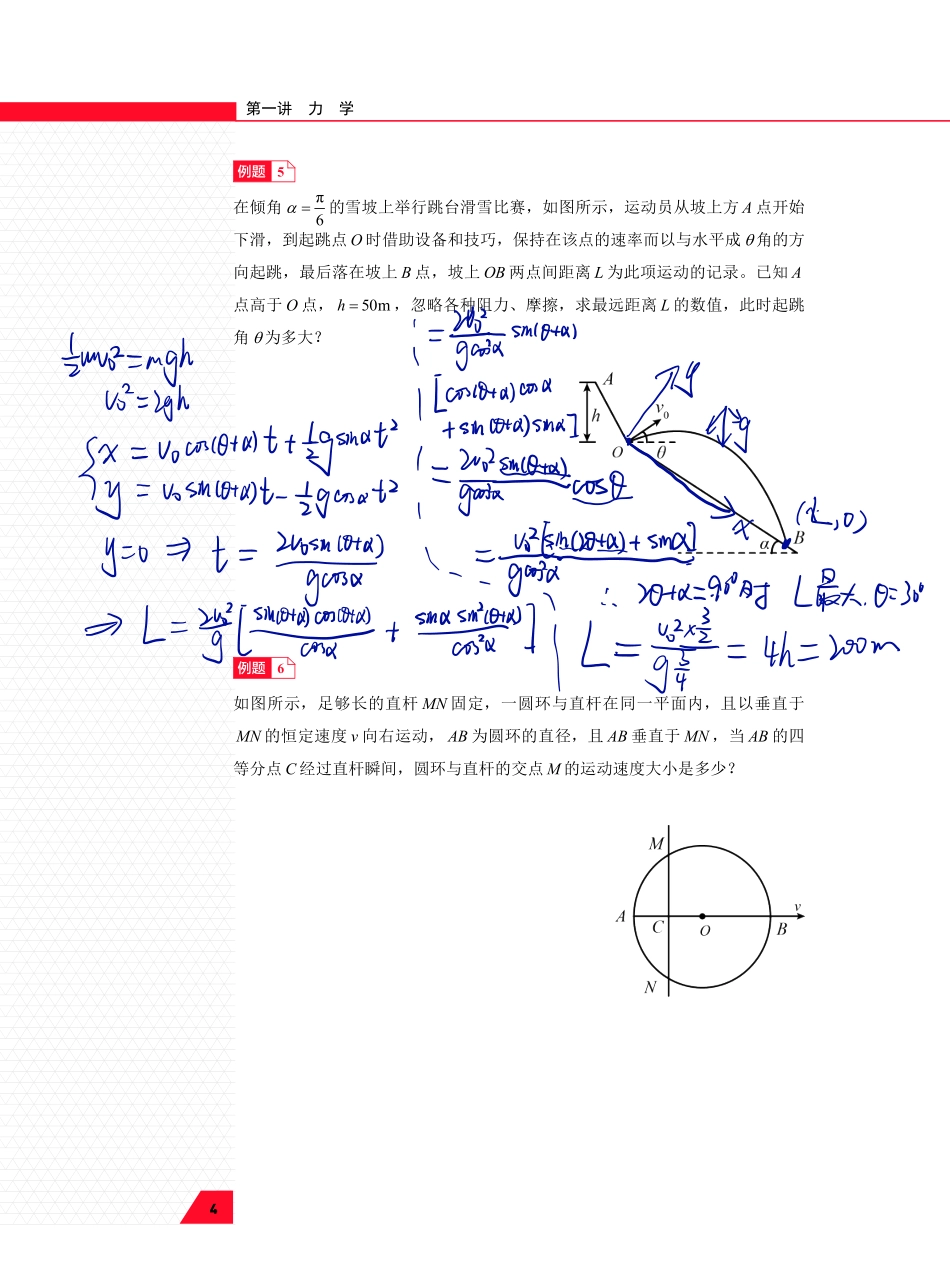 第一讲 力 学
例题 5
在倾角 α = π/6 的雪坡上举行跳台滑雪比赛，如图所示，运动员从坡上方 A 点开始
下滑，到起跳点 O 时借助设备和技巧，保持在该点的速率而以与水平成 θ 角的方
向起跳，最后落在坡上 B 点，坡上 OB 两点间距离 L 为此项运动的记录。已知 A
点高于 O 点， h = 50m ，忽略各种阻力、摩擦，求最远距离 L 的数值，此时起跳
角 θ 为多大？
½mv₀² = mgh
v₀² = 2gh
x = v₀cos(θ+α)t + ½gsinαt²
y = v₀sin(θ+α)t - ½gcosαt²
y=0 ⇒ t = 2v₀sin(θ+α)/gcosα
⇒ L = 2v₀²/g [sin(θ+α)cos(θ+α)/cosα + sinαsin²(θ+α)/cos²α]
= 2v₀²/gcos²α sin(θ+α)
[cos(θ+α)cosα
+ sin(θ+α)sinα]
= 2v₀²sin(θ+α)/gcos²α cosθ
= v₀²[sin(2θ+α)+sinα]/gcos²α
A
h
v₀
O
θ
y
g
x
(L,0)
B
α
∴ 2θ+α=90°时 L最大.θ=30°
L = v₀²×3/2 / g3/4 = 4h = 200m
例题 6
如图所示，足够长的直杆 MN 固定，一圆环与直杆在同一平面内，且以垂直于
MN 的恒定速度 v 向右运动， AB 为圆环的直径，且 AB 垂直于 MN ，当 AB 的四
等分点 C 经过直杆瞬间，圆环与直杆的交点 M 的运动速度大小是多少？
M
A
C
O
B
v
N
4